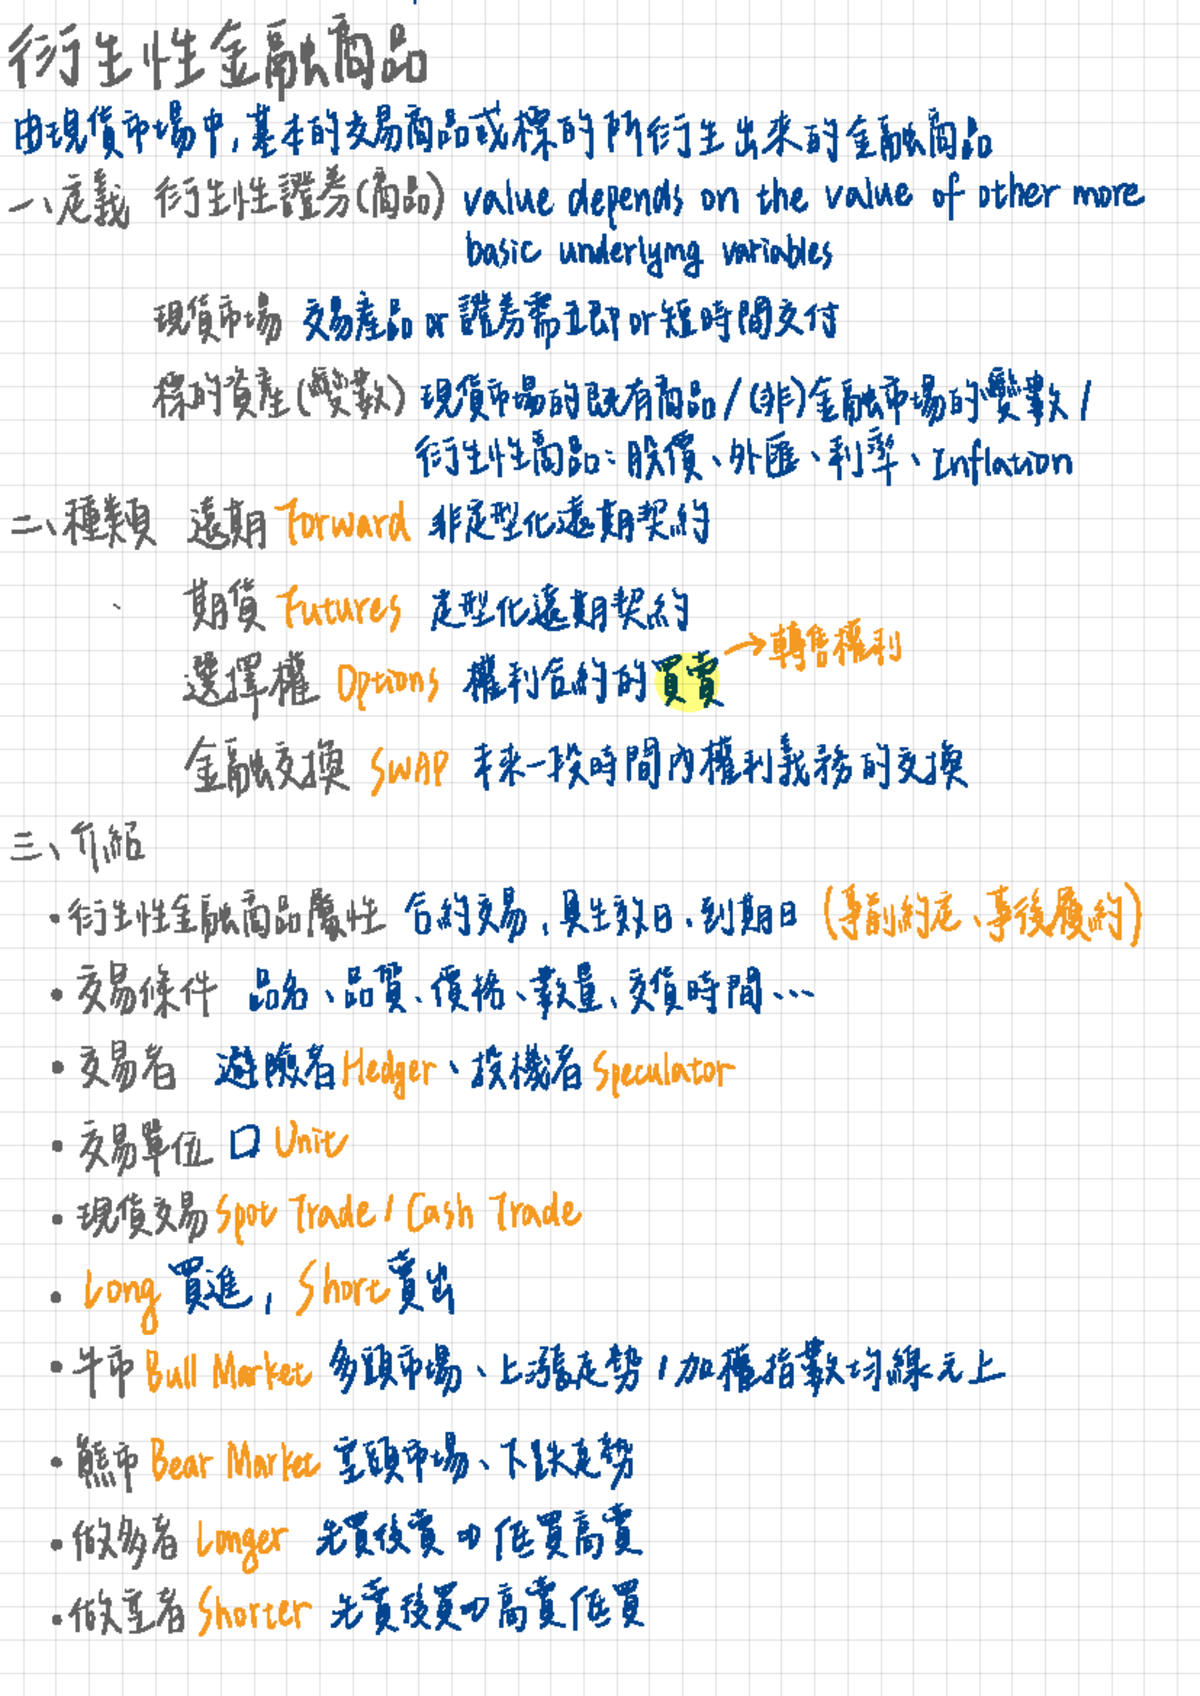 衍生性金融商品
由現貨市場中,基本的交易商品或標的所衍生出來的金融商品
一、定義 衍生性證券(商品) value depends on the value of other more
basic underlying variables
現貨市場 交易產品 or 證券需立即 or 短時間交付
標的資產(變數) 現貨市場的既有商品/(非)金融市場的變數/
衍生性商品:股價、外匯、利率、Inflation
二、種類 遠期 Forward 非定型化遠期契約
期貨 Futures 定型化遠期契約
選擇權 Options 權利合約的買賣 →轉售權利
金融交換 SWAP 未來一段時間內權利義務的交換
三、介紹
•衍生性金融商品屬性 合約交易,具生效日、到期日 (事前約定、事後履約)
•交易條件 品名、品質、價格、數量、交貨時間…
•交易者 避險者Hedger、投機者Speculator
•交易單位 口 Unit
•現貨交易 Spot Trade / Cash Trade
•Long 買進, Short 賣出
•牛市 Bull Market 多頭市場、上漲走勢,加權指數均線之上
•熊市 Bear Market 空頭市場、下跌走勢
•做多者 Longer 先買後賣 ⇒ 低買高賣
•做空者 Shorter 先賣後買 ⇒ 高賣低買